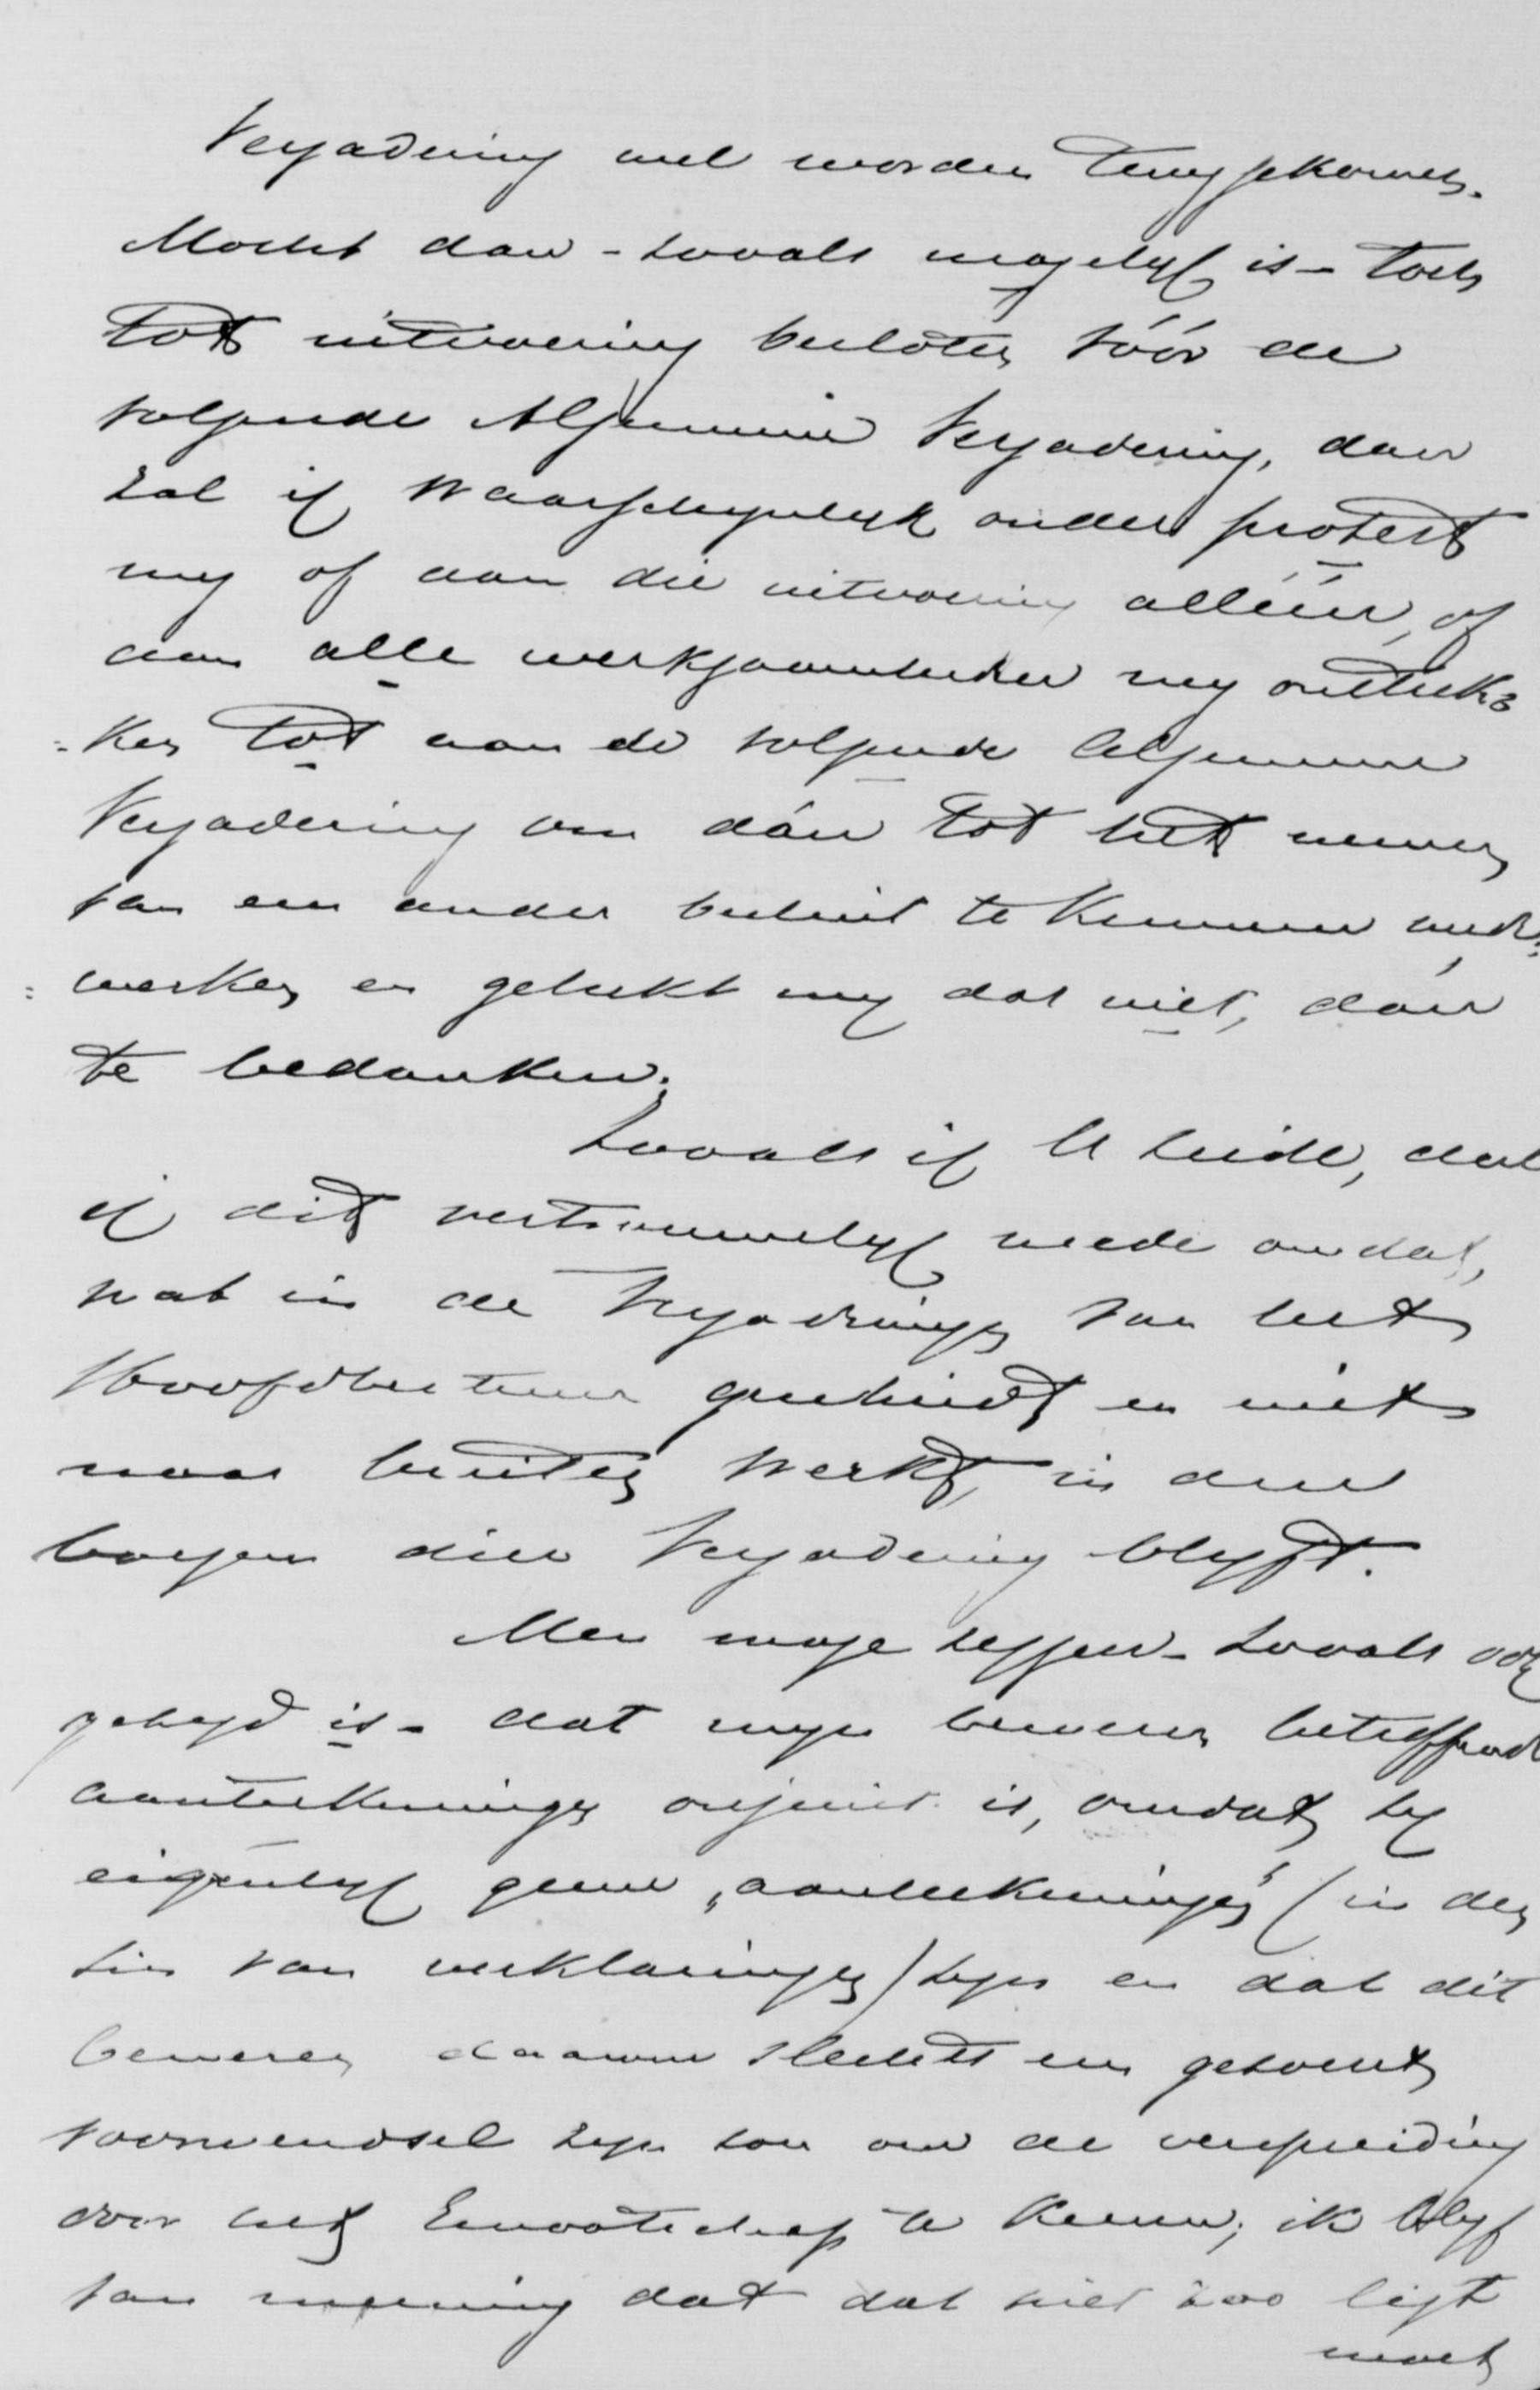 Vergadering wel worden teruggekomen.
Mocht dan - zooals mogelyk is - toch
tot uitvoering besloten vóór de
volgende Algemeene Vergadering, dan
zal ik waarschynlyk onder protest
my of aan die uitvoering alléén, of
aan alle werkzaamheden my onttrek=
=ken tot aan de volgende Algemeene
Vergadering om dán tot het nemen
van een ander besluit te kunnen mede=
=werken en gelukt my dat niet, dán
te bedanken.
Zooals ik U zeide, deel
ik dit vertrouwelyk mede omdat,
wat in de Vergaderingen van het
Hoofdbestuur geschiedt en niet
naar buiten werkt, in den
boezem dier Vergadering blyft.
Men moge zeggen - zooals ook
gezegd is - dat myn beweren betreffende
aanteekeningen onjuist is, omdat zy
eigenlyk geene „aanteekeningen" (in den
zin van verklaringen) zyn en dat dit
beweren daarom slechts een gezocht
voorwendsel zyn zou om de verspreiding
door het Genootschap te keeren; ik blyf
van meening dat dat niet zoo ligt
moet